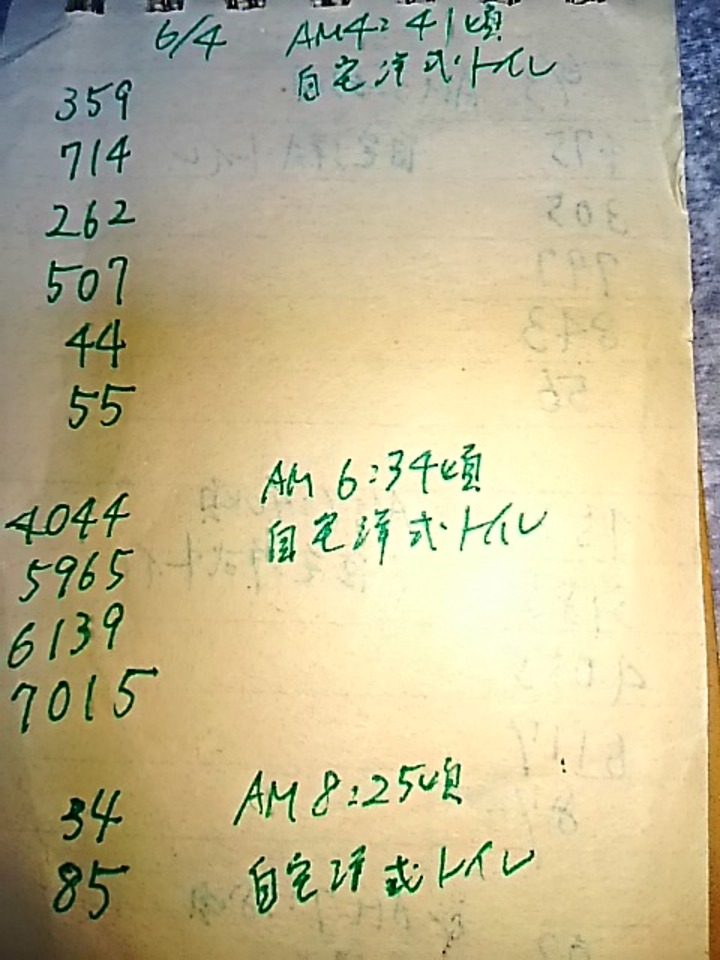 6/4 AM4:41頃
自宅洋式トイレ
359
714
262
507
44
55
AM 6:34頃
自宅洋式トイレ
4044
5965
6139
7015
AM 8:25頃
34
自宅洋式トイレ
85